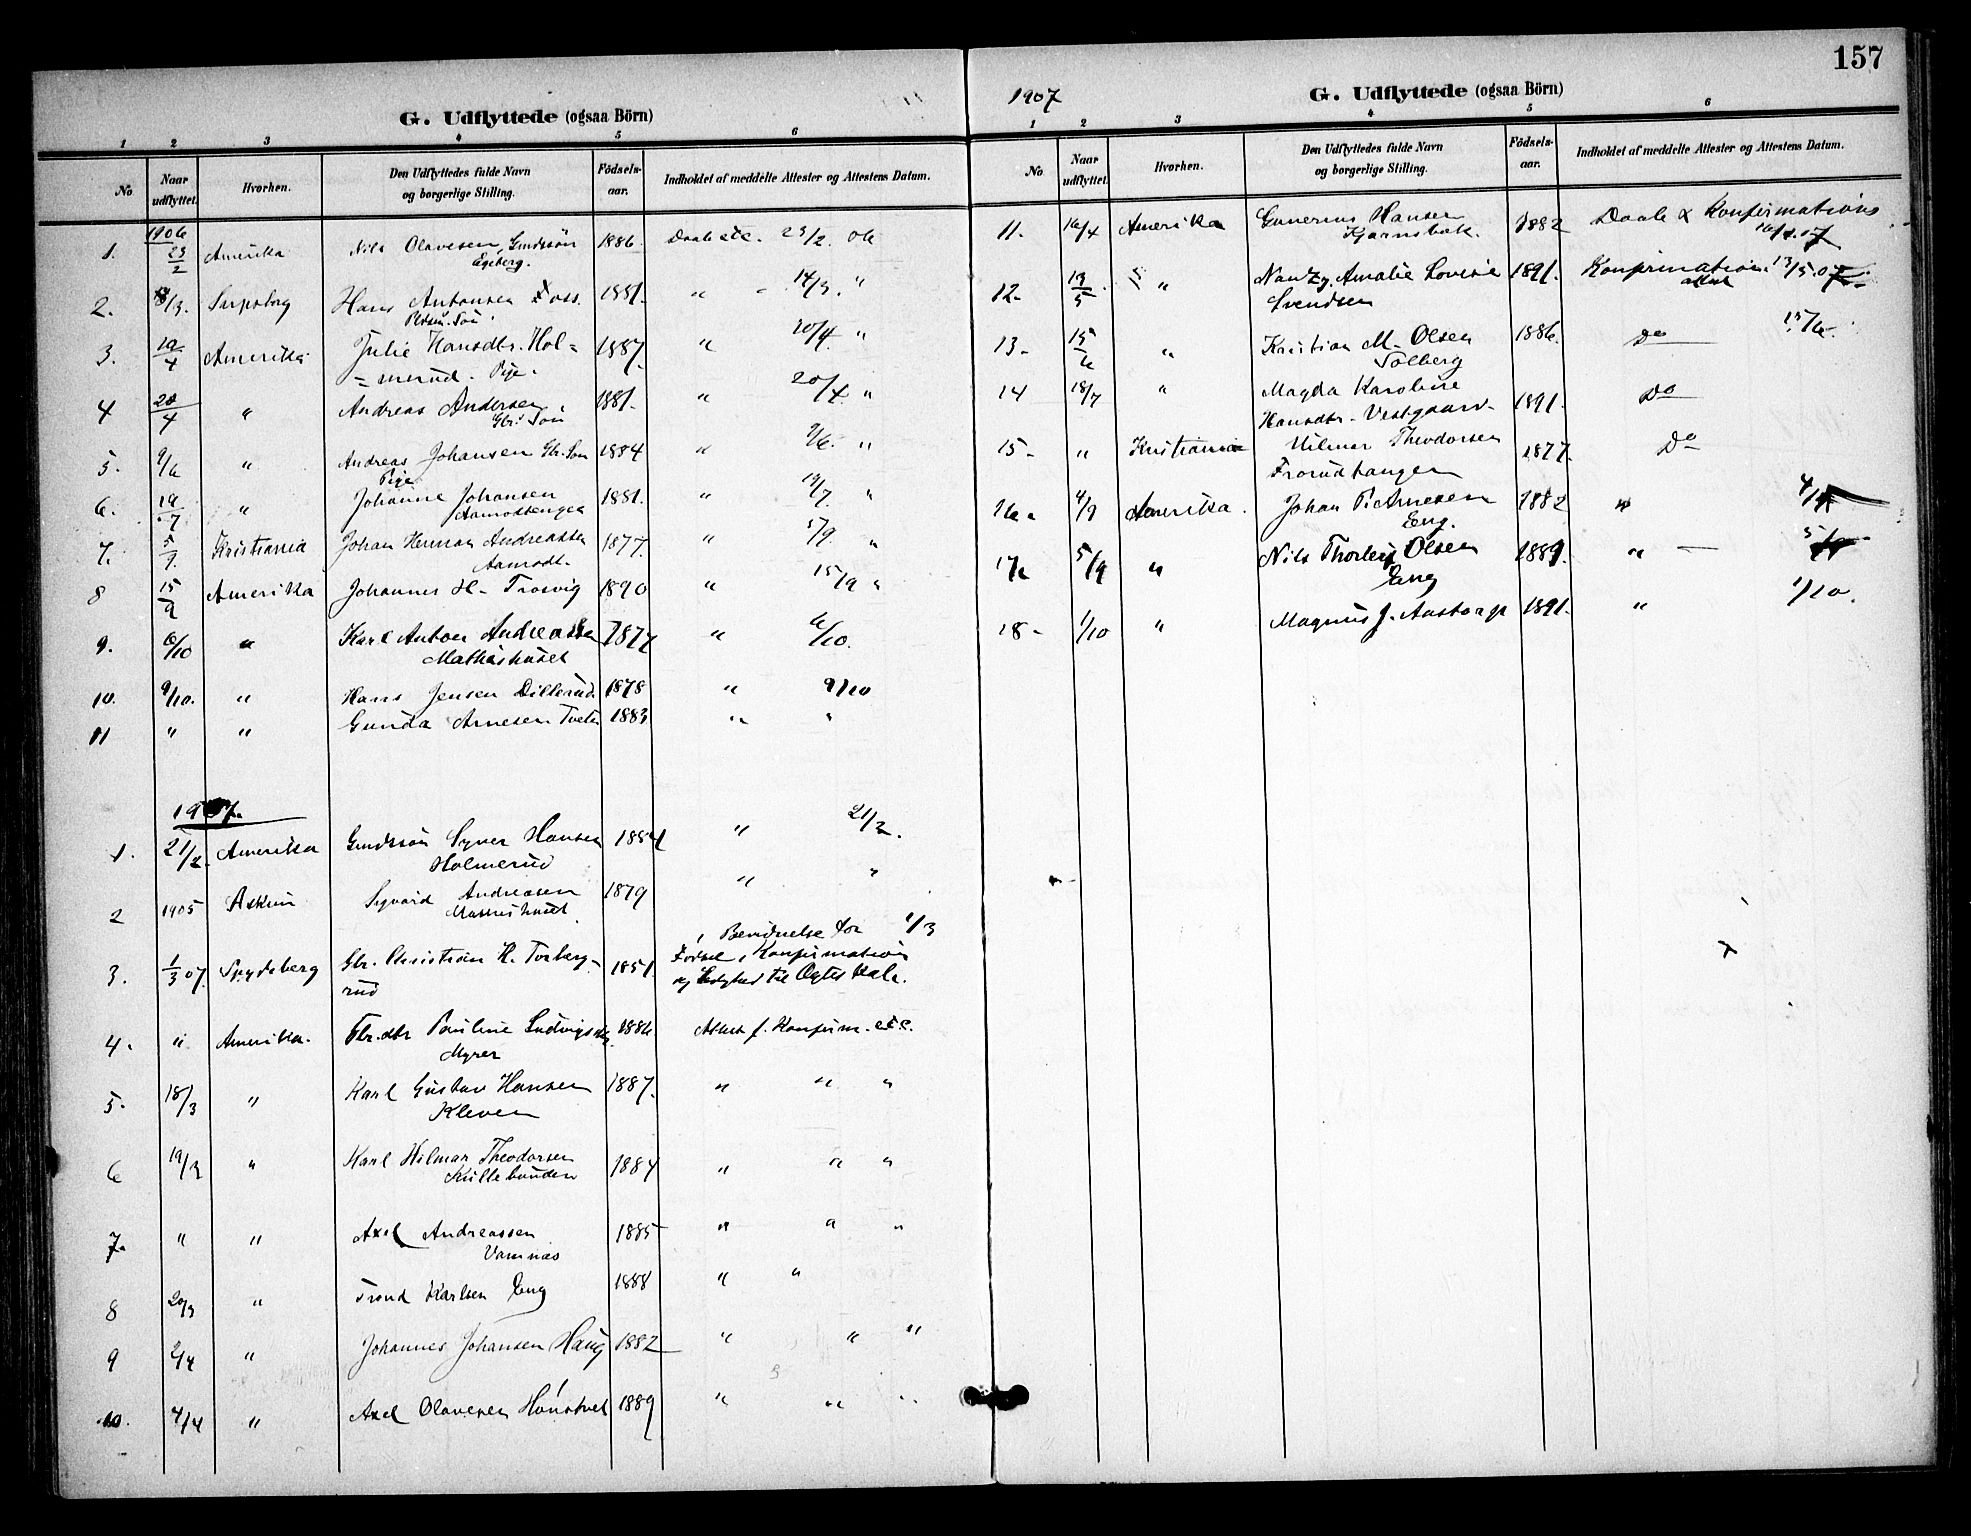 G. Udflyttede (ogsaa Börn)
1 2 3 4 5 6
No Naar udflyttet. Hvorhen. Den Udflyttedes fulde Navn og borgerlige Stilling. Födselsaar. Indholdet af meddelte Attester og Attestens Datum.
1906
1. 23/2 Amerika Nils Olavesen, Gmdssön 1886. Daab etc. 23/2. 06
Egeberg.
2. /3. Sarpsborg Hans Antonsen Foss 1881. " - 14/3. "
3. 19/4 Amerika Julie Hansdtr. Hol= 1887. " 20/4. "
=merud. Pige.
4 20/4 " Andreas Andersen, 1881. " 20/4 "
Gbr. Sön
5. 9/6 " Andreas Johansen Gbr. Sön 1884 " 9/6. "
Pige
6. 19/7 " Johanne Johansen 1881. " 19/7. "
Aamodtengea
7. 5/9. Kristiania Johan Herman Andreassen 1877. " 5/9. "
Aamodt.
8 15/9 Amerika Johannes H. Trosvig 1890 " 15/9 "
9. 6/10 " Karl Anton Andreassen 1877 " 6/10.
Mathishuset
10. 9/10. " Hans Jensen Dillerud. 1878 " 9/10
11 " " Gunda Arnesen Tveter 1883 " "
1907.
1. 21/2. Amerika Gmdssön Syver Hansen 1884 " 21/2.
Holmerud
2 1905 Askim Sigvard Andreasen 1879 " "
Mathishuset.
Bevidnelse for 1/3
3. 1/3 07. Spydeberg Gbr. Christian H. Torberg- 1851. Födsel, Konfirmation
rud og Ledighed til Ægteskab.
4. " Amerika. Gbr.dtr Pauline Ludvigsdtr. 1886 Attest f. Konfirm. etc.
Myrer
5. 18/3 " Karl Gustav Hansen 1887. " " "
Kleven
6 19/3 " Karl Hilmar Theodorsen 1884 " " "
Küllebunden
7. " " Axel Andreassen 1885 " " "
Vamnæs
8 20/3 " Trond Karlsen Eng 1888 " "
9 2/4 " Johannes Johansen Haug 1882 " " "
10. 4/4 " Axel Olavesen Hönstvet 1889 " " "
157
1907
G. Udflyttede (ogsaa Börn)
1 2 3 4 5 6
No Naar udflyttet. Hvorhen. Den Udflyttedes fulde Navn og borgerlige Stilling. Födselsaar. Indholdet af meddelte Attester og Attestens Datum.
11. 16/4 Amerika Gunerius Hansen 1882 Daab & Konfirmations
Kjærnsbæk. 16/4.07
12- 13/5 " Nantzy Amalie Lovise 1891. Konfirmations 13/5.07.
Svendsen attest
13- 15/6 " Kristian M. Olsen 1886. Do 15/6.
Solberg
14 18/7 " Magda Karoline
Hansdtr. Vestgaard. 1891. Do
15- " Kristiania Hilmar Theodorsen 1877. Do
Frorudhangen
16. 4/9 Amerika. Johan P. Arnesen 1882 " 4/9
Eng.
17. 5/9 " Nils Thorleif Olsen 1889. " — 5/9
Eng
18- 1/10 " Magnus J. Aastorp 1891. " 1/10.